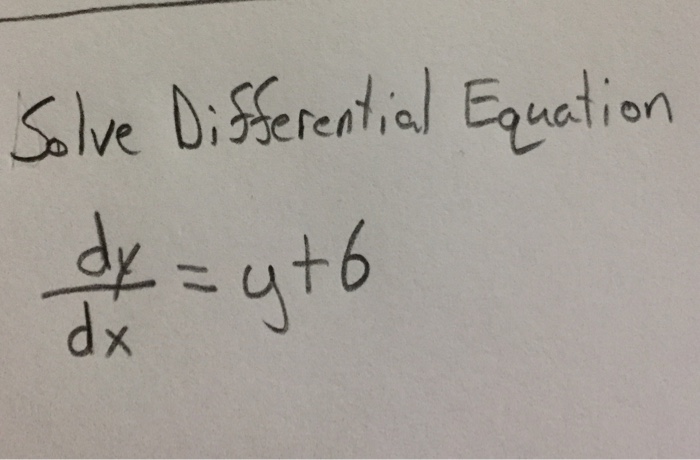 Solve Differential Equation
dy/dx = y+6